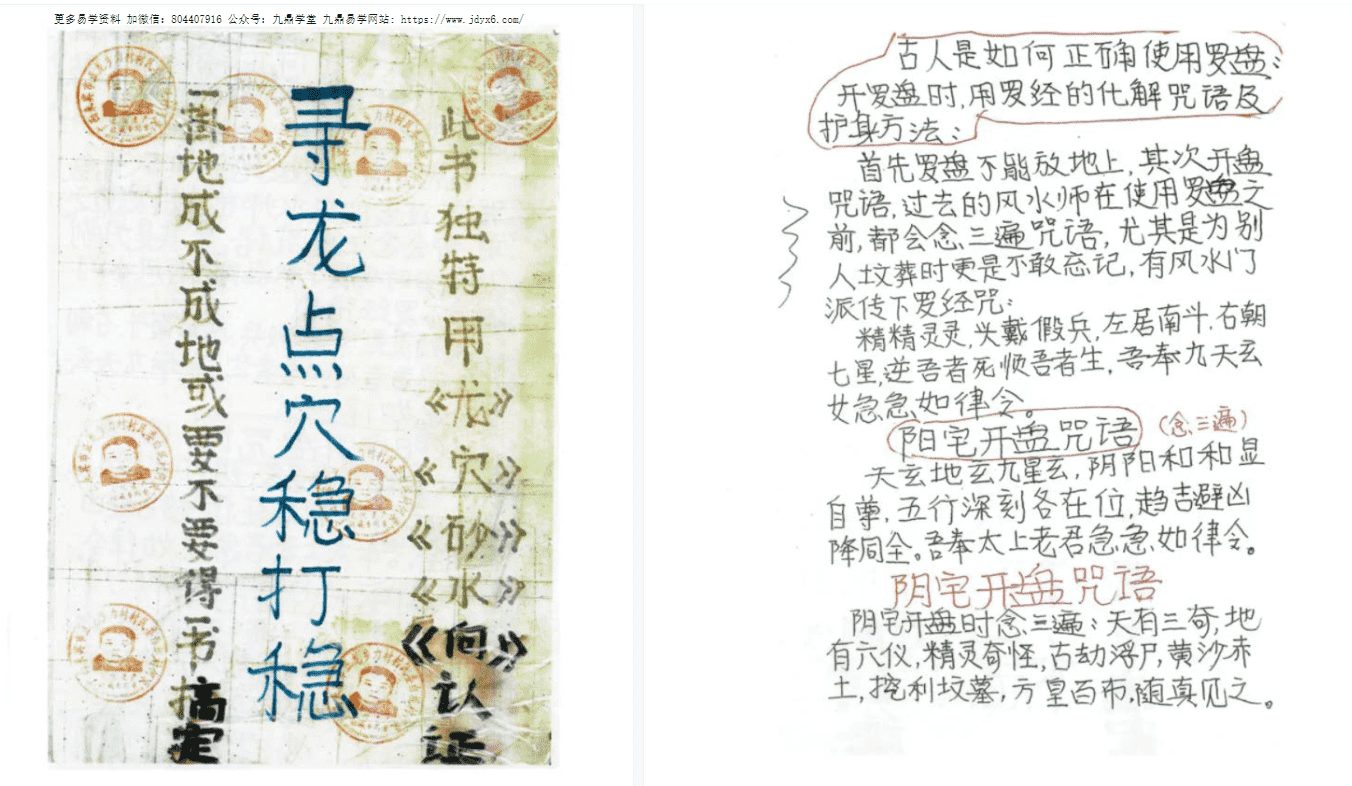 更多易学资料 加微信：804407916 公众号：九鼎学堂 九鼎易学网站：https://www.jdyx6.com/
此书独特用《龙》《穴》《砂》《水》《向》认证
寻龙点穴稳打稳
一满地成不成地或要不要得一书搞定
古人是如何正确使用罗盘：
开罗盘时，用罗经的化解咒语及
护身方法：
首先罗盘不能放地上，其次开盘
咒语，过去的风水师在使用罗盘之
前，都会念三遍咒语，尤其是为别
人坟葬时更是不敢忘记，有风水门
派传下罗经咒：
精精灵灵，头戴假兵，左居南斗，右朝
七星，逆吾者死顺吾者生，吾奉九天玄
女急急如律令。
阳宅开盘咒语（念三遍）
天玄地玄九星玄，阴阳和和显
自尊，五行深刻各在位，趋吉避凶
降周全。吾奉太上老君急急如律令。
阴宅开盘咒语
阴宅开盘时念三遍：天有三奇，地
有六仪，精灵奇怪，古劫浮尸，黄沙赤
土，挖利坟墓，方皇百布，随真见之。